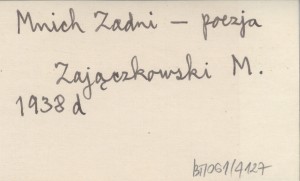 Mnich Zadni – poezja
Zajączkowski M.
1938 d
BT/061/4127